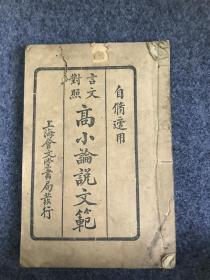 自脩適用
言文
對照
高小論說文範
上海會文堂書局發行